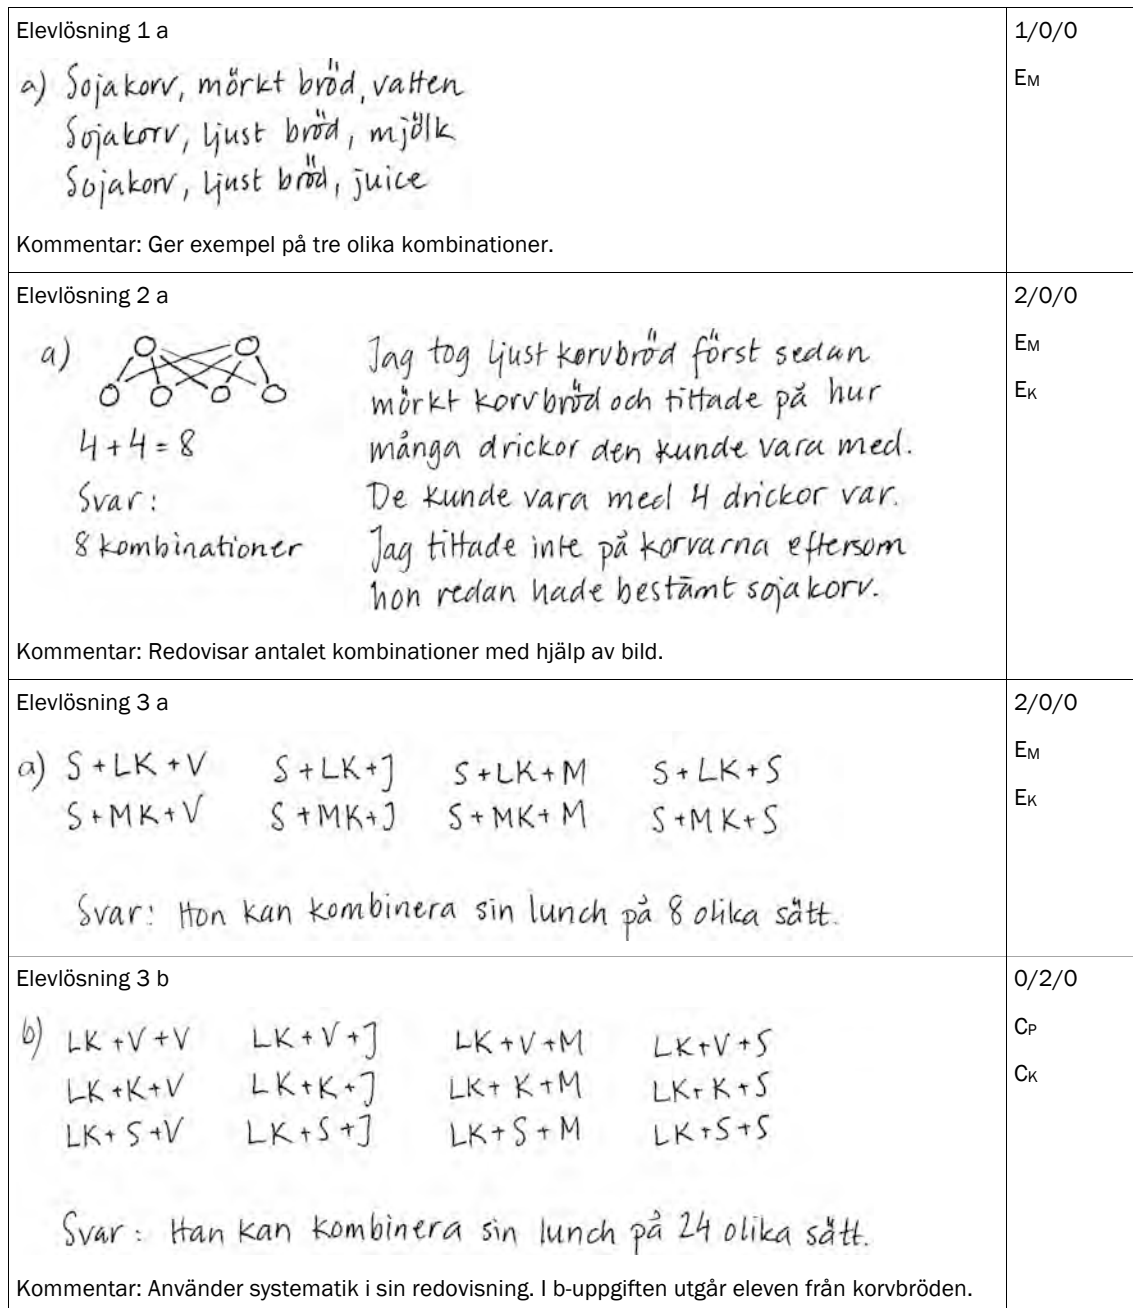 Elevlösning 1 a
1/0/0
a) Sojakorv, mörkt bröd, vatten
EM
Sojakorv, ljust bröd, mjölk
Sojakorv, ljust bröd, juice
Kommentar: Ger exempel på tre olika kombinationer.
Elevlösning 2 a
2/0/0
a)
Jag tog ljust korvbröd först sedan
EM
mörkt korvbröd och tittade på hur
EK
4+4=8
många drickor den kunde vara med.
Svar:
De kunde vara med 4 drickor var.
8 kombinationer
Jag tittade inte på korvarna eftersom
hon redan hade bestämt sojakorv.
Kommentar: Redovisar antalet kombinationer med hjälp av bild.
Elevlösning 3 a
2/0/0
a) S+LK+V S+LK+J S+LK+M S+LK+S
EM
S+MK+V S+MK+J S+MK+M S+MK+S
EK
Svar: Hon kan kombinera sin lunch på 8 olika sätt.
Elevlösning 3 b
0/2/0
b) LK+V+V LK+V+J LK+V+M LK+V+S
CP
LK+K+V LK+K+J LK+K+M LK+K+S
CK
LK+S+V LK+S+J LK+S+M LK+S+S
Svar: Han kan kombinera sin lunch på 24 olika sätt.
Kommentar: Använder systematik i sin redovisning. I b-uppgiften utgår eleven från korvbröden.